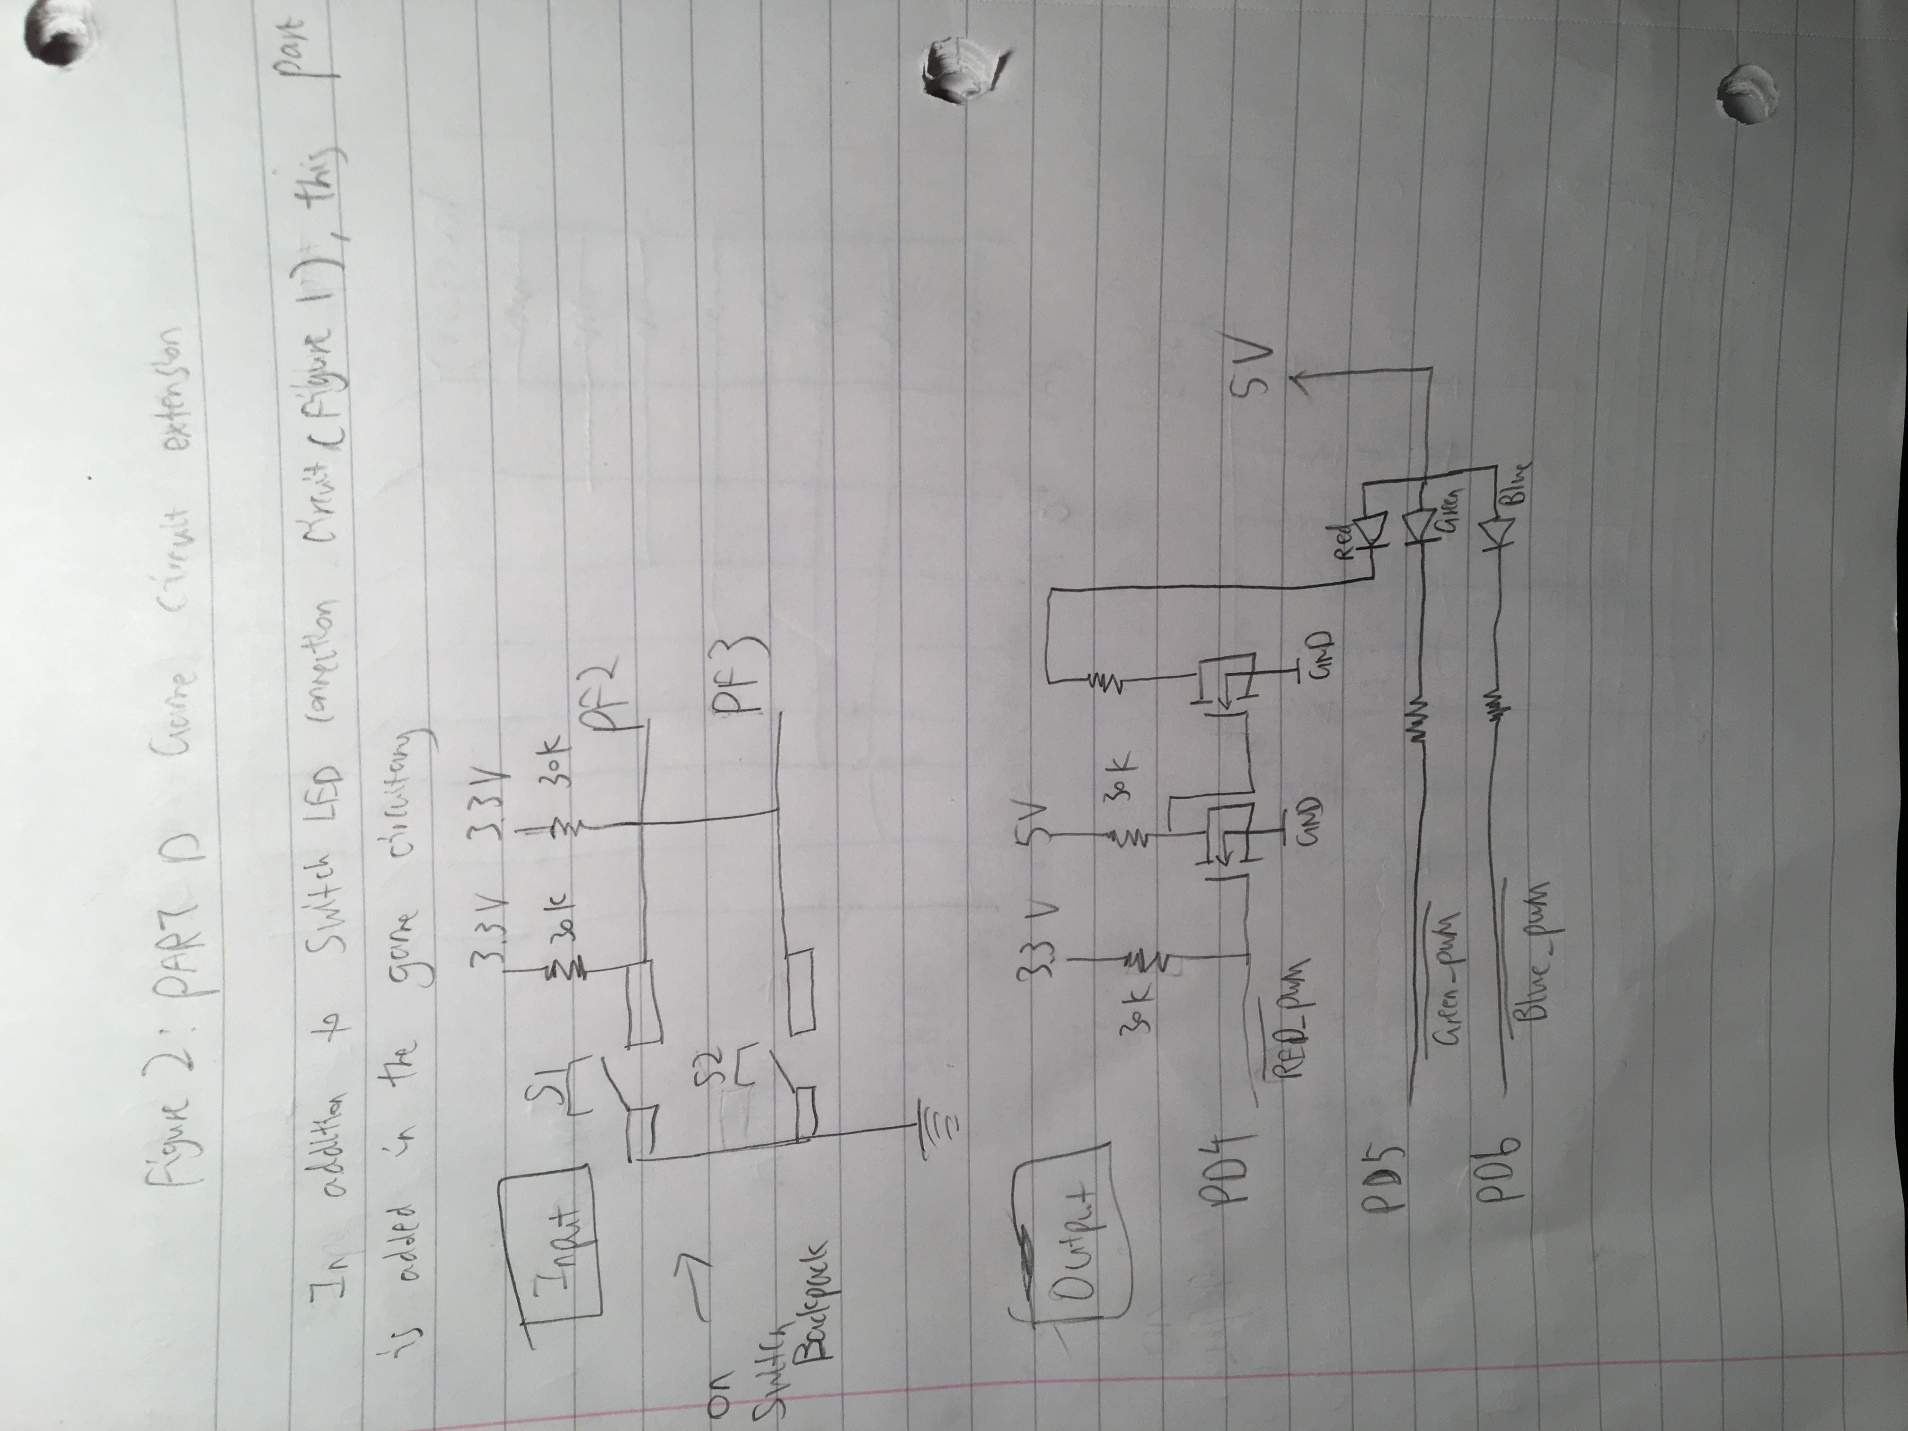 Figure 2: PART D Game Circuit extension
In addition to Switch LED connection Circuit (Figure 1), this part
is added in the game circuitary
Input
3.3V 3.3V
30k 30k
S1
PF2
S2
PF3
on
Switch
Backpack
Output
3.3V 5V
30k 30k
5V
PD4
RED_PWM
GND GND
Red
PD5
Green_PWM
Green
PD6
Blue_PWM
Blue